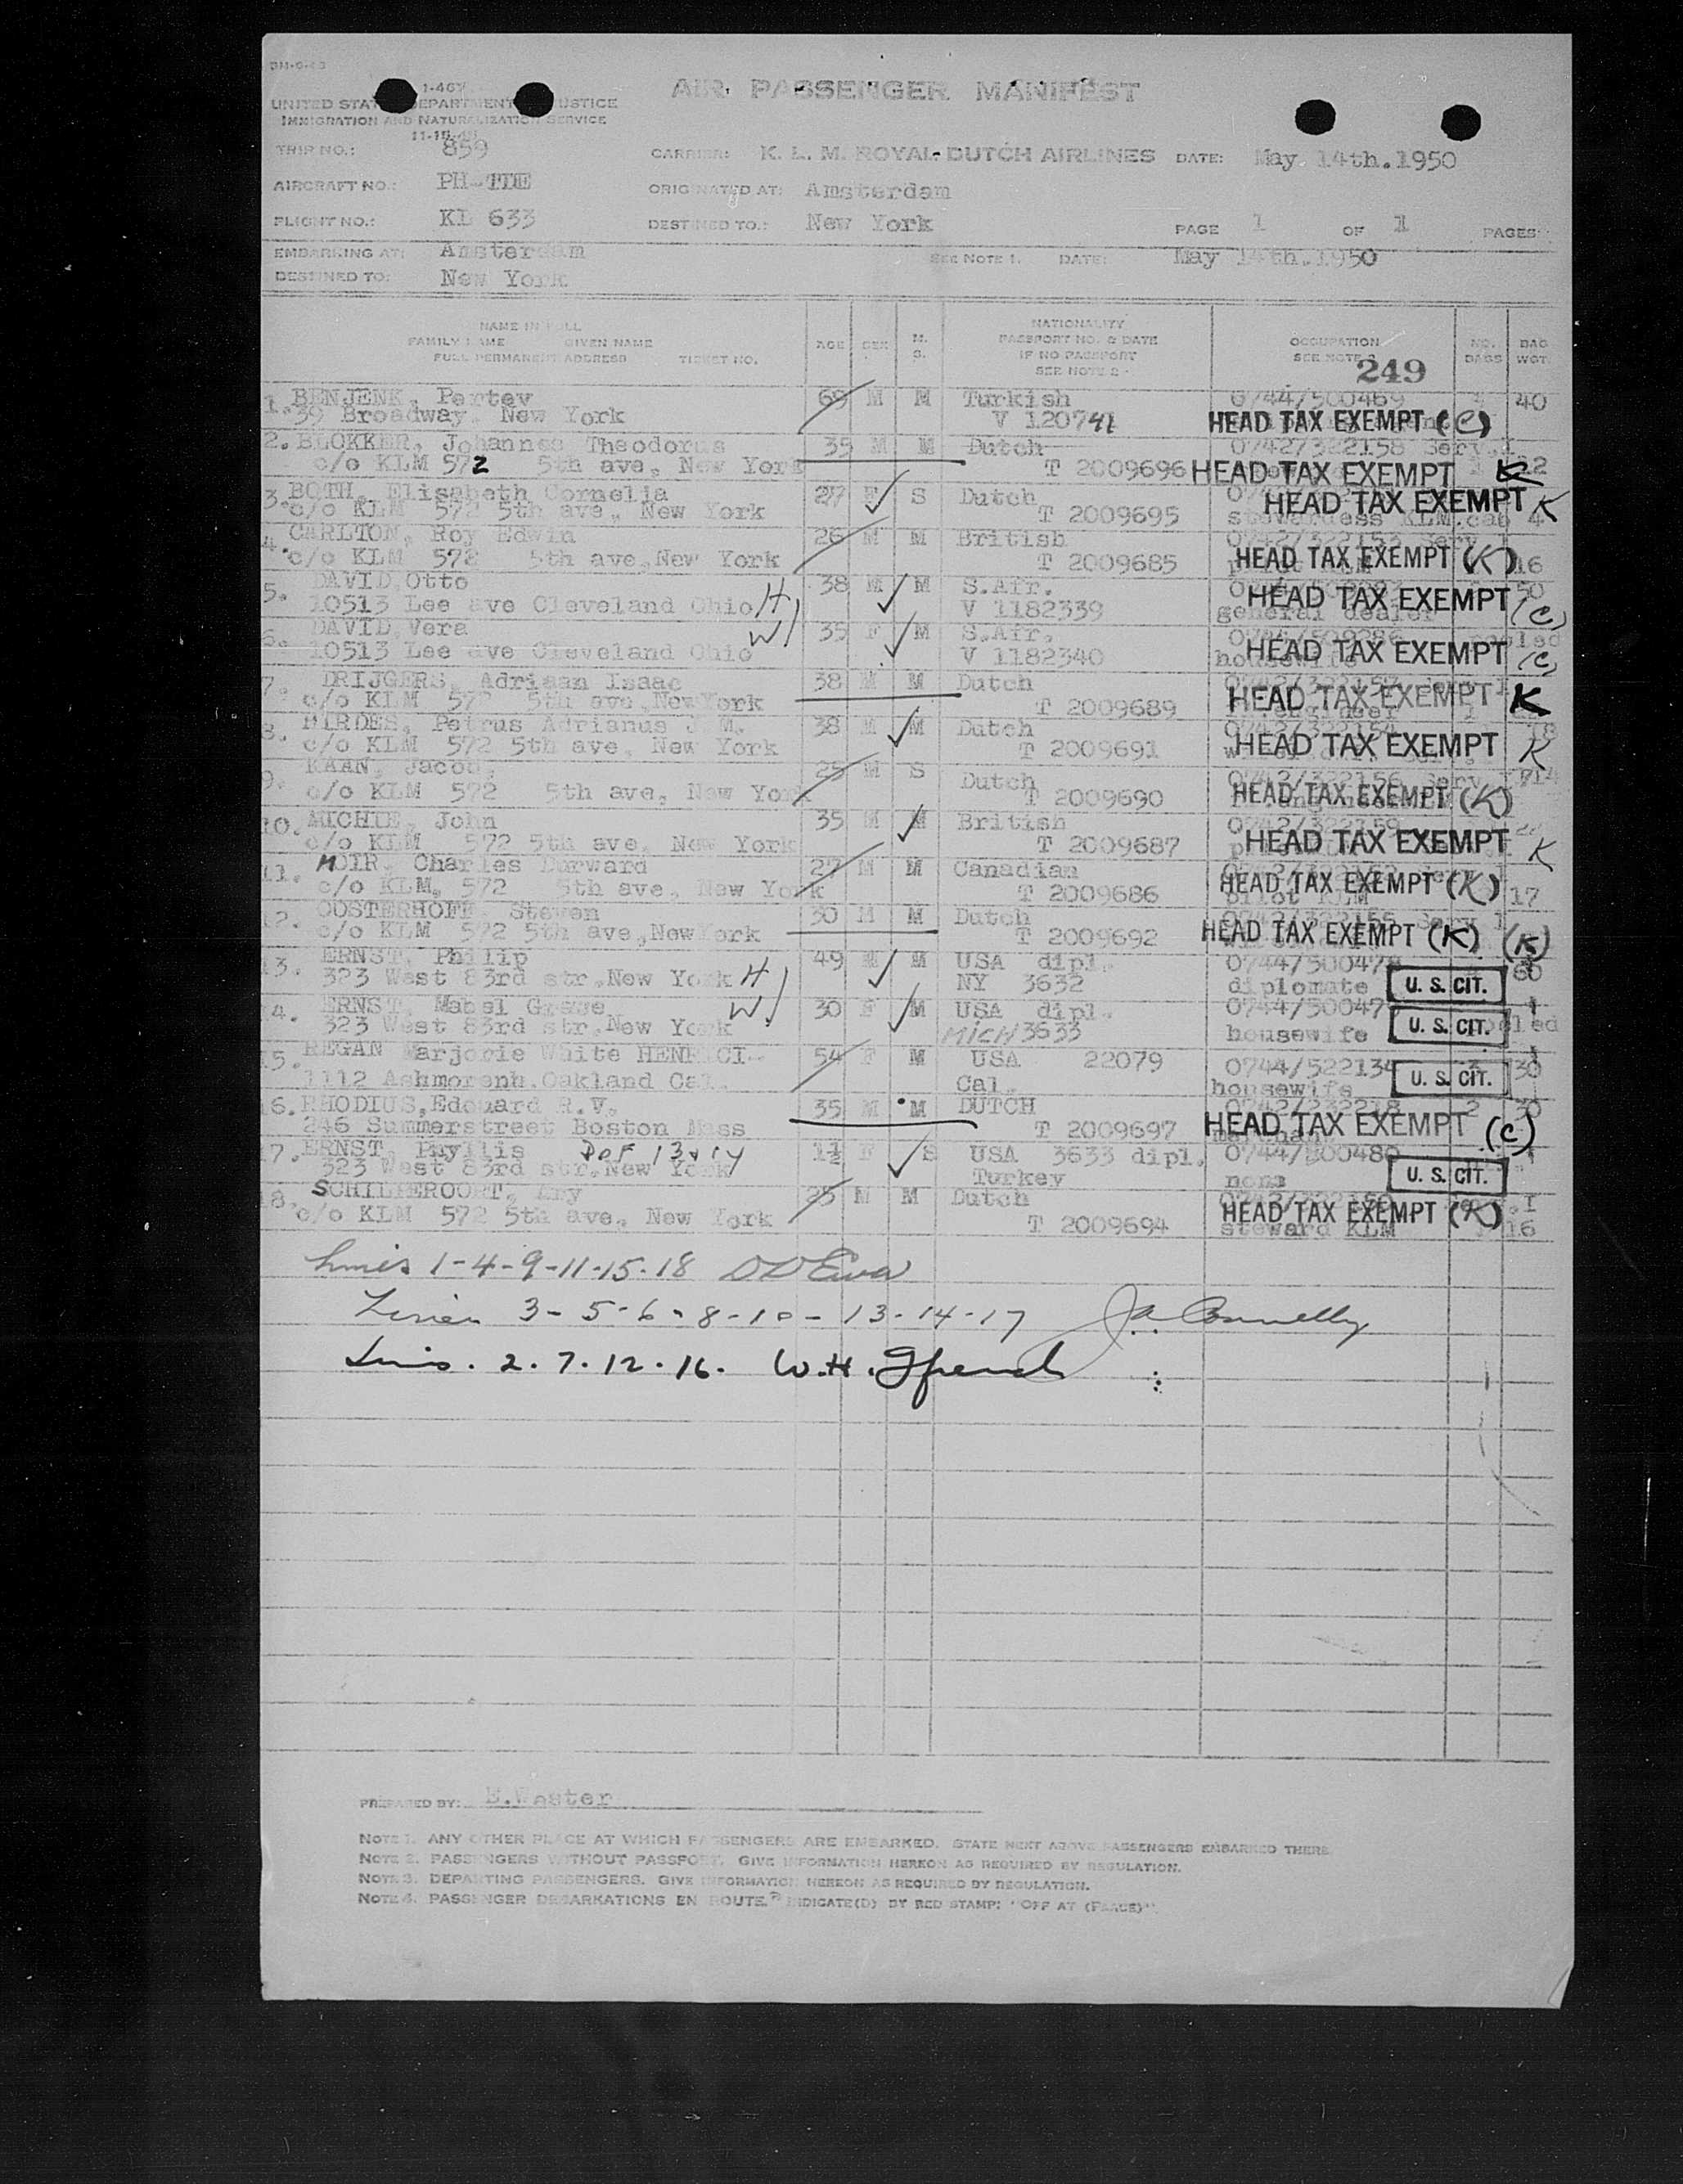 AIR PASSENGER MANIFEST
UNITED STATES DEPARTMENT OF JUSTICE
IMMIGRATION AND NATURALIZATION SERVICE
TRIP NO.: 859 CARRIER: K. L. M. ROYAL DUTCH AIRLINES DATE: May 14th.1950
AIRCRAFT NO.: PH-TDE ORIGINATED AT: Amsterdam
FLIGHT NO.: KL 633 DESTINED TO: New York PAGE 1 OF 1 PAGES
EMBARKING AT: Amsterdam SEE NOTE 1. DATE: May 14th.1950
DESTINED TO: New York
NAME IN FULL
FAMILY NAME GIVEN NAME
FULL PERMANENT ADDRESS TICKET NO.
AGE SEX M. S.
NATIONALITY
PASSPORT NO. & DATE
IF NO PASSPORT
SEE NOTE 2
OCCUPATION
SEE NOTE
NO. BAGS BAG WGT.
249
1. BENJENK, Pertev 69 M M Turkish 0744/500469 40
39 Broadway New York V 120741 HEAD TAX EXEMPT (C)
2. BLOKKER, Johannes Theodorus 35 M M Dutch 0742/322158 Serv.
c/o KLM 572 5th ave, New York T 2009696 HEAD TAX EXEMPT K
3. BOTH, Elisabeth Cornelia 27 F S Dutch HEAD TAX EXEMPT K
c/o KLM 572 5th ave, New York T 2009695 stewardess KLM
4. CARLTON, Roy Edwin 26 M M British
c/o KLM 572 5th ave, New York T 2009685 HEAD TAX EXEMPT (K) 16
5. DAVID Otto 38 M M S.Afr. HEAD TAX EXEMPT (C) 50
10513 Lee ave Cleveland Ohio H V 1182339 general dealer
6. DAVID Vera W 35 F M S.Afr.
10513 Lee ave Cleveland Ohio V 1182340 HEAD TAX EXEMPT (C)
7. DRIJGERS, Adriaan Isaac 38 M M Dutch
c/o KLM 572 5th ave, New York T 2009689 HEAD TAX EXEMPT K
8. Petrus Adrianus J. M. 38 M M Dutch
c/o KLM 572 5th ave, New York T 2009691 HEAD TAX EXEMPT K
9. KAAN, Jacob, 25 M S Dutch 0742/322156 Serv.
c/o KLM 572 5th ave, New York T 2009690 HEAD TAX EXEMPT (K)
10. MICHIE, John 35 M M British 0742/322159
c/o KLM 572 5th ave, New York T 2009687 HEAD TAX EXEMPT K
11. MOIR, Charles Durward 27 M M Canadian
c/o KLM, 572 5th ave, New York T 2009686 HEAD TAX EXEMPT (K) pilot KLM 17
12. OOSTERHOFF, Steven 30 M M Dutch
c/o KLM 572 5th ave, New York T 2009692 HEAD TAX EXEMPT (K) (K)
13. ERNST, Philip 49 M M USA dipl. 0744/500478 60
323 West 83rd str, New York H NY 3632 diplomate U. S. CIT.
14. ERNST, Mabel Grace W 30 F M USA dipl.
323 West 83rd str, New York MICH 3633 housewife U. S. CIT.
15. REGAN Marjorie White HENRICI 54 F M USA 22079 0744/522134 30
1112 Oakland Cal. Cal. housewife U. S. CIT.
16. RHODIUS, Edouard R.V. 35 M M DUTCH
246 Summerstreet Boston Mass T 2009697 HEAD TAX EXEMPT (C)
17. ERNST, Phyllis D of 13 & 14 1½ F S USA 3633 dipl. 0744/500480
323 West 83rd str, New York Turkey none U. S. CIT.
18. SCHILPEROORT, Ary 25 M M Dutch
c/o KLM 572 5th ave, New York T 2009694 HEAD TAX EXEMPT (K) steward KLM 16
Lines 1-4-9-11-15-18
Lines 3-5-6-8-10-13-14-17 J.A. Connelly
Lines. 2.7.12.16. W.H.
PREPARED BY: E.Wester
NOTE 1. ANY OTHER PLACE AT WHICH PASSENGERS ARE EMBARKED. STATE NEXT ABOVE PASSENGERS EMBARKED THERE
NOTE 2. PASSENGERS WITHOUT PASSPORT. GIVE INFORMATION HEREON AS REQUIRED BY REGULATION.
NOTE 3. DEPARTING PASSENGERS. GIVE INFORMATION HEREON AS REQUIRED BY REGULATION.
NOTE 4. PASSENGER DEBARKATIONS EN ROUTE. INDICATE(D) BY RED STAMP: "OFF AT (PLACE)".